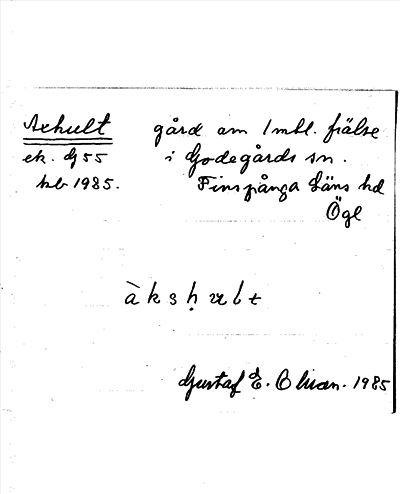 Axhult gård om 1 mtl. frälse
ek. Gj 55 i Godegårds sn.
hb 1985. Finspånga Läns hd
Ögl
àksḥult
Gustaf E. Olsson. 1985